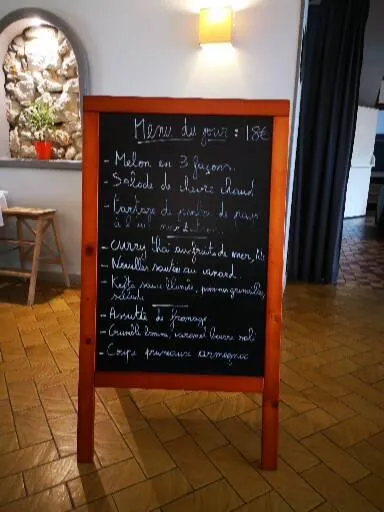 Menu du jour : 18€
- Melon en 3 façons.
- Salade de chèvre chaud
- Tartare de
à la
- curry thaï aux fruits de mer, riz
- Nouilles sautées au canard.
- Kefta sauce blanche, pommes grenailles,
salade
- Assiette de fromage
- Crumble caramel beurre salé
- Coupe pruneaux armagnac